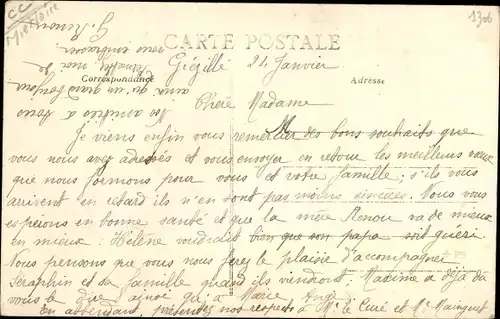 1300
CC
CARTE POSTALE
Correspondance
Adresse
Grézillé 24 Janvier
Chère Madame
Je viens enfin vous remercier des bons souhaits que
vous nous avez adressés et vous envoyer en retour les meilleurs vœux
que nous formons pour vous et votre famille ; s'ils vous
arrivent en retard ils n'en sont pas moins sincères. Nous vous
espérons en bonne santé et que la mère Renou va de mieux
en mieux. Hélène voudrait bien que son papa soit guéri
Nous pensons que vous nous ferez le plaisir d'accompagner
Séraphin et sa famille quand ils viendront. Maxime a déjà dû
vous le dire ainsi qu'à Marie
En attendant, présentez nos respects à Mr le Curé et Mr Mainguet
ainsi qu'un grand bonjour
Permettez moi de
vous embrasser.
G. Renou